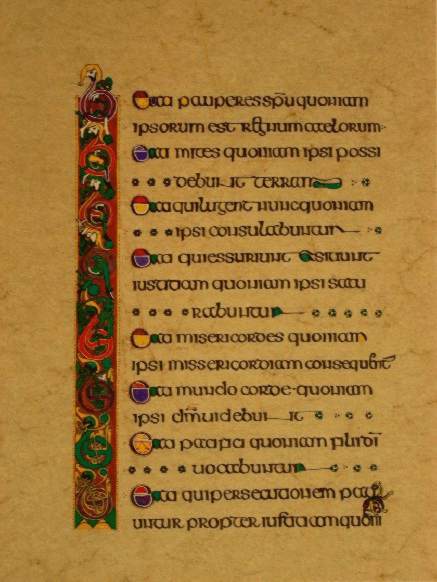 Beati pauperes spu quoniam
ipsorum est regnum caelorum
Beati mites quoniam ipsi possi
debunt terram
Beati qui lugent nunc quoniam
ipsi consulabuntur
Beati qui essuriunt & sitiunt
iustitiam quoniam ipsi satu
rabuntur
Beati misericordes quoniam
ipsi missericordiam
Beati mundo corde quoniam
ipsi dm uidebunt
Beati quoniam filii di
uocabuntur
Beati qui persecutionem pati
untur propter iustitiam quoni